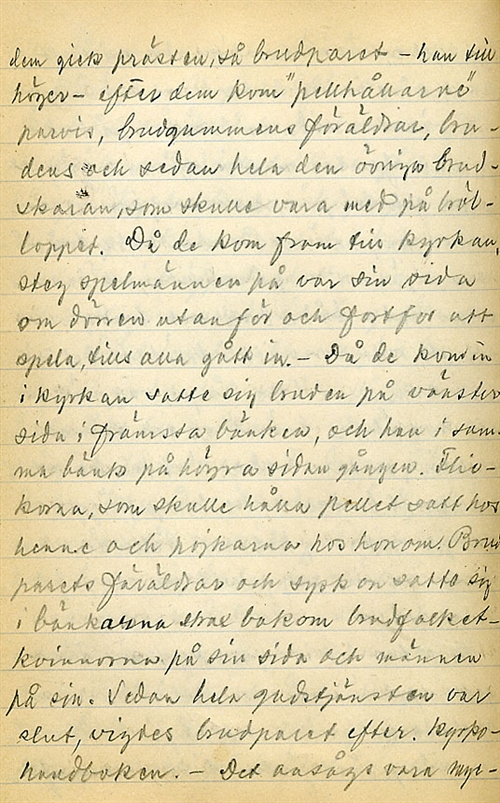 dem gick prästen, så brudparet – han till
höger – efter dem kom "pellhållarne"
parvis, brudgummens föräldrar, bru-
dens och sedan hela den övriga brud-
skaran, som skulle vara med på bröl-
loppet. Då de kom fram till kyrkan,
steg spelmännen på var sin sida
om dörren utanför och fortfor att
spela, tills alla gått in. – Då de kom in
i kyrkan satte sig bruden på vänster
sida i främsta bänken, och han i sam-
ma bänk på högra sidan gången. Flic-
korna, som skulle hålla pellet satt hos
henne och pojkarna hos honom. Brud
parets föräldrar och syskon satts sig
i bänkarna strax bakom brudfolket –
kvinnorna på sin sida och männen
på sin. Sedan hela gudstjänsten var
slut, vigdes brudparet efter. kyrko-
handboken. – Det ansågs vara myc-